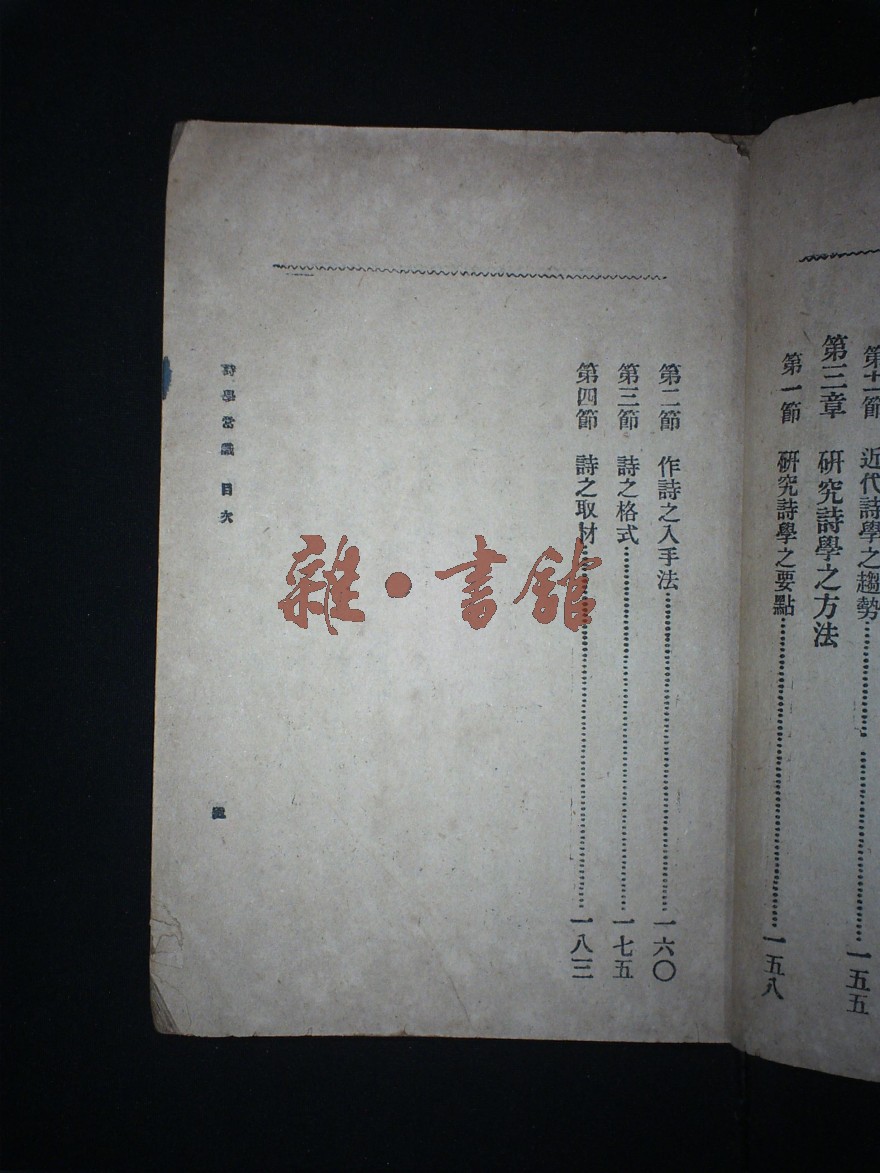 第十一節　近代詩學之趨勢……………一五五
第三章　研究詩學之方法
第一節　研究詩學之要點……………一五八
第二節　作詩之入手法……………一六〇
第三節　詩之格式……………一七五
第四節　詩之取材……………一八三
詩學常識　目次
雜·書館